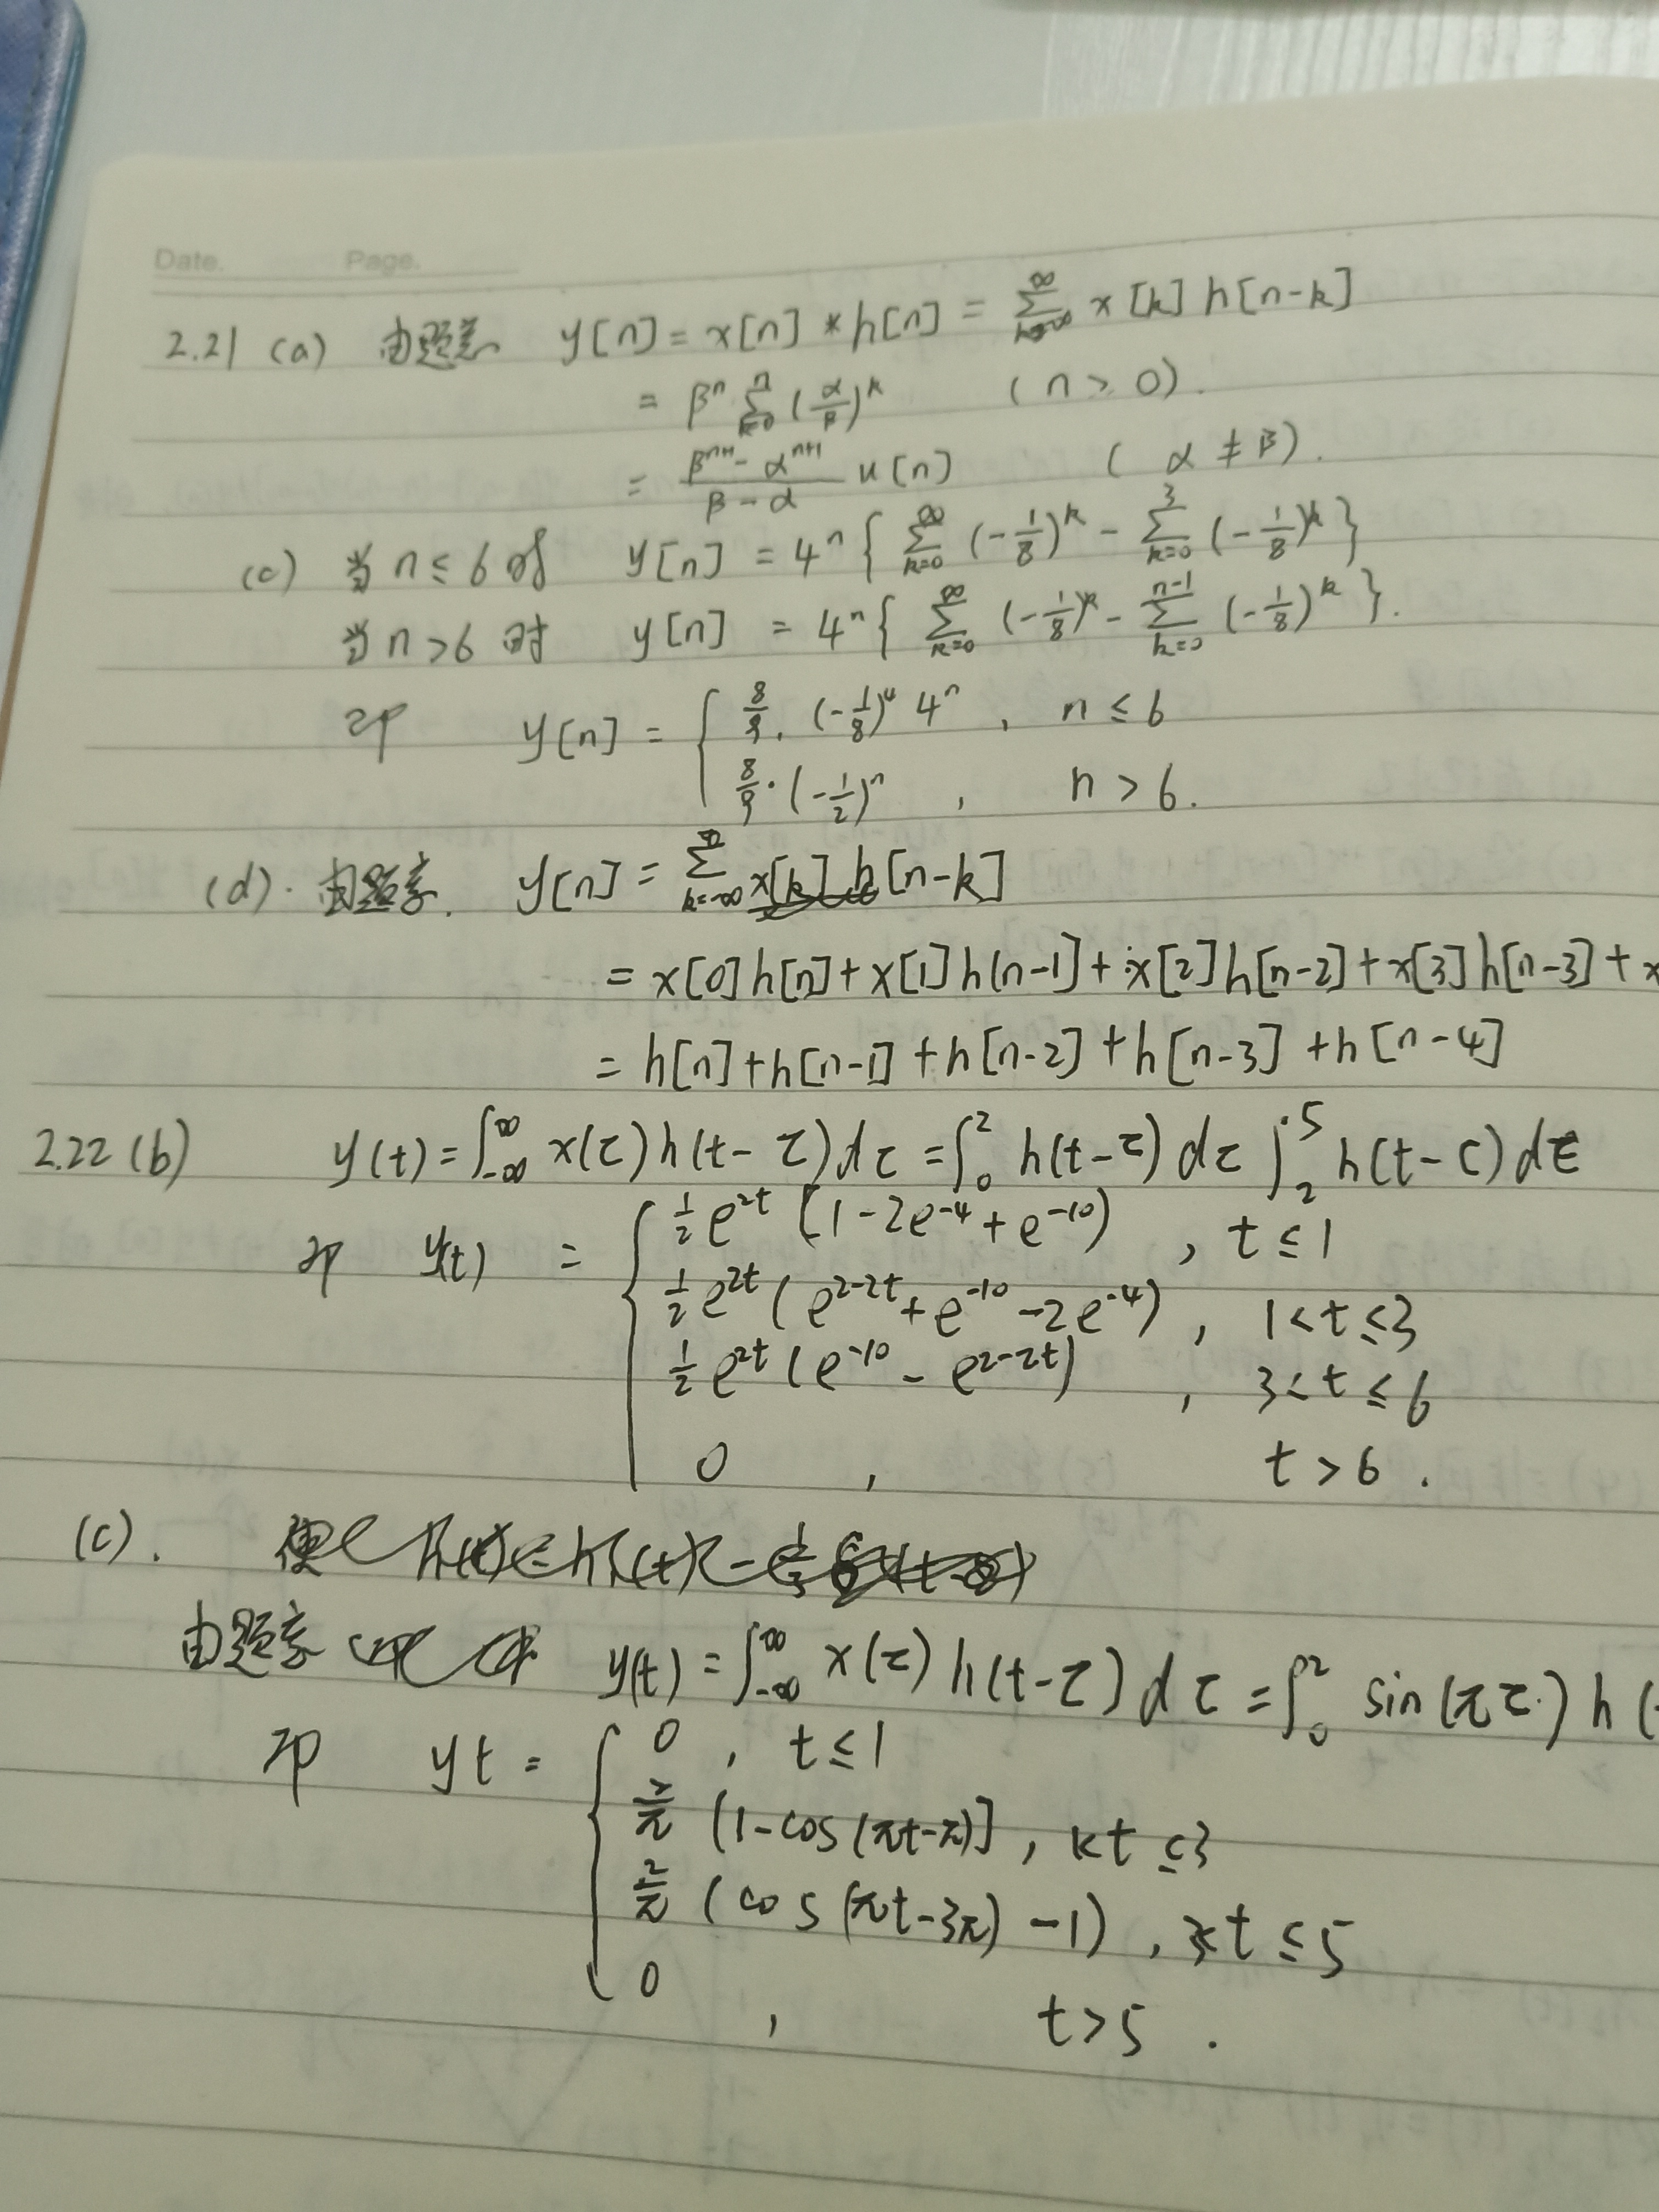 Date. Page.
2.21 (a) 由题意 y[n] = x[n] * h[n] = ∑_{k=-∞}^{∞} x[k] h[n-k]
= β^n ∑_{k=0}^{n} (α/β)^k (n ≥ 0).
= (β^{n+1} - α^{n+1})/(β - α) u[n] (α ≠ β).
(c) 当 n ≤ 6 时 y[n] = 4^n { ∑_{k=0}^{∞} (-1/8)^k - ∑_{k=0}^{3} (-1/8)^k }
当 n > 6 时 y[n] = 4^n { ∑_{k=0}^{∞} (-1/8)^k - ∑_{k=0}^{n-1} (-1/8)^k }.
即 y[n] = { 8/9 · (-1/8)^4 4^n , n ≤ 6
8/9 · (-1/2)^n , n > 6.
(d). 由题意. y[n] = ∑_{k=-∞}^{∞} x[k] h[n-k]
= x[0]h[n] + x[1]h[n-1] + x[2]h[n-2] + x[3]h[n-3] + x
= h[n] + h[n-1] + h[n-2] + h[n-3] + h[n-4]
2.22 (b) y(t) = ∫_{-∞}^{∞} x(τ) h(t-τ) dτ = ∫_0^2 h(t-τ) dτ ∫_2^5 h(t-τ) dτ
即 y(t) = { 1/2 e^{2t} [1 - 2e^{-4} + e^{-10}) , t ≤ 1
1/2 e^{2t} (e^{2-2t} + e^{-10} - 2e^{-4}) , 1 < t ≤ 3
1/2 e^{2t} (e^{-10} - e^{2-2t}) , 3 < t ≤ 6
0 , t > 6 .
(c).
由题意 y(t) = ∫_{-∞}^{∞} x(τ) h(t-τ) dτ = ∫_0^2 sin(πτ) h (
即 yt = { 0 , t ≤ 1
2/π [1 - cos(πt-π)] , 1<t ≤ 3
2/π (cos(πt-3π) - 1) , 3<t ≤ 5
0 , t > 5 .